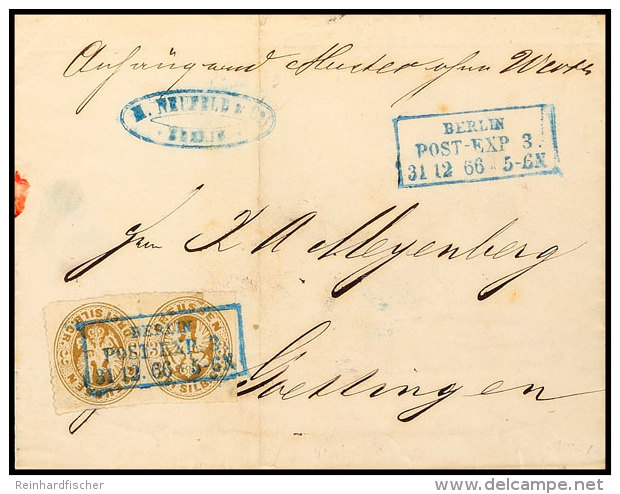 Anhängend Muster ohne Werth
M. NEUFELD & Co.
BERLIN
BERLIN
POST-EXP 3.
31 12 66 5-6N
Herrn A Meyenberg
BERLIN
POST-EXP 3.
31 12. 66 5-6N
Goettingen
Reinhardfischer
delcampe.net